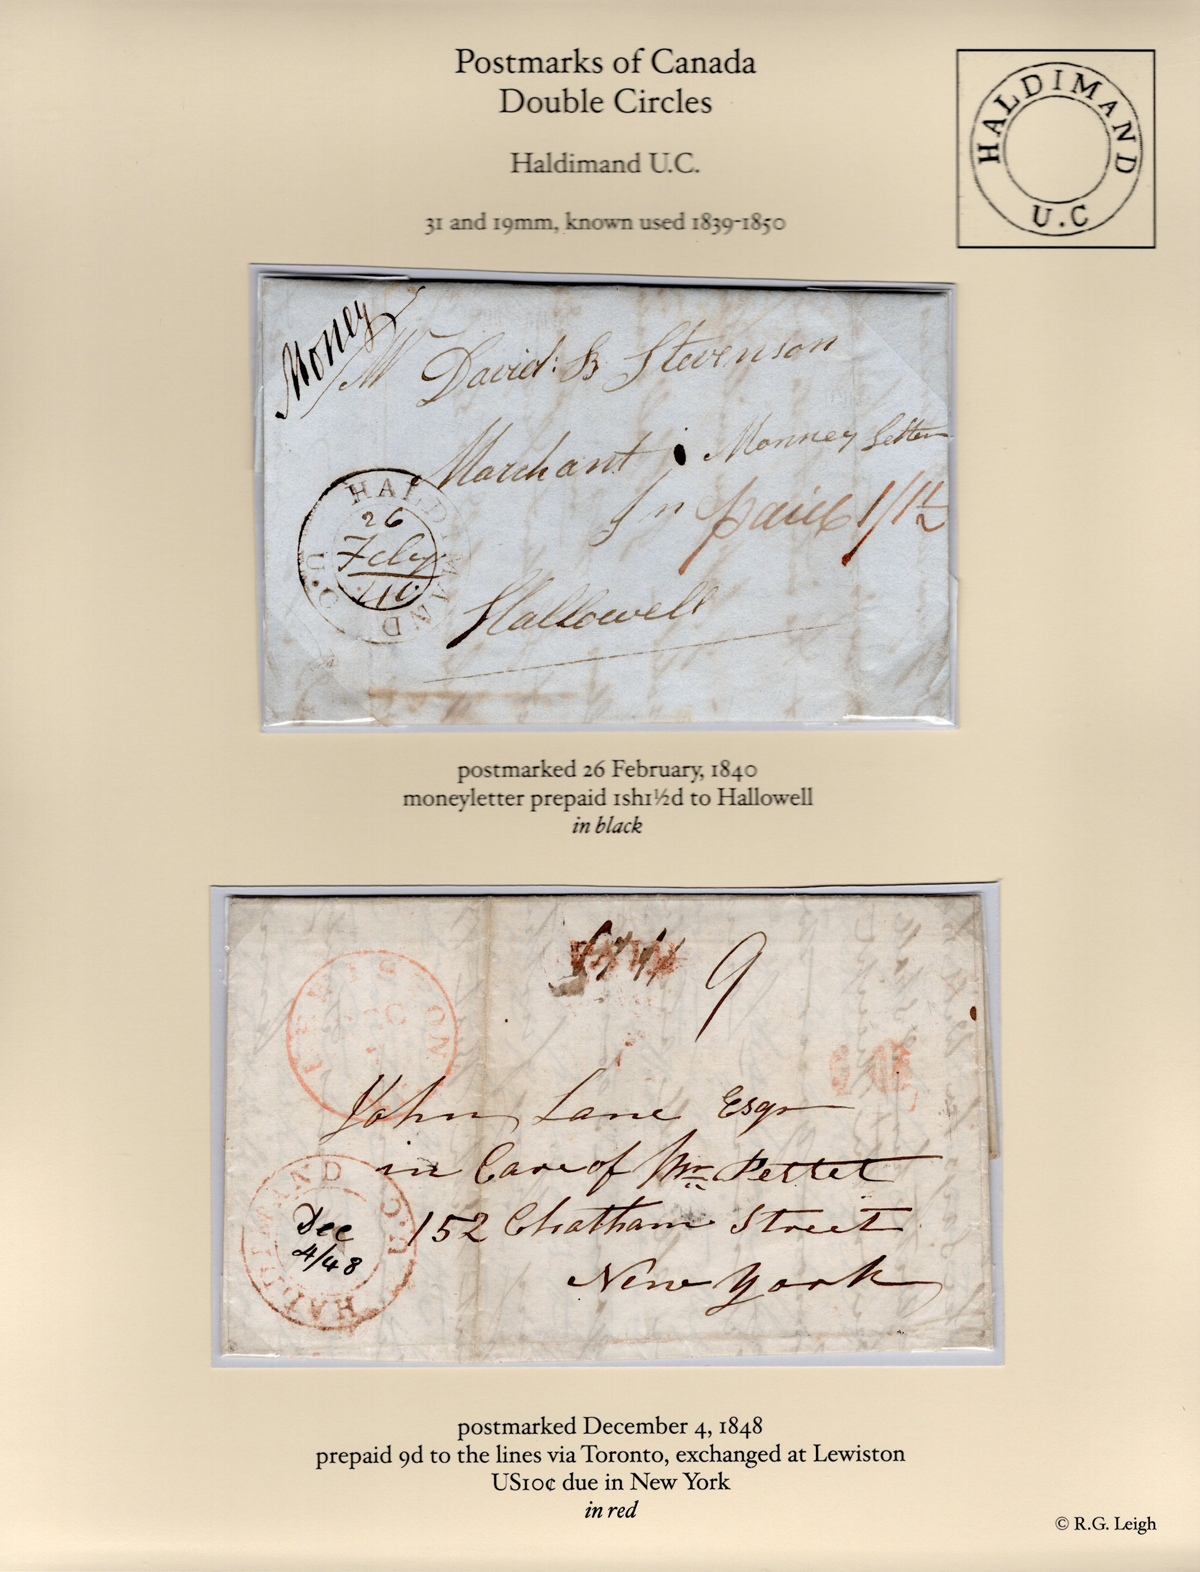 Postmarks of Canada
Double Circles
Haldimand U.C.
31 and 19mm, known used 1839-1850
HALDIMAND
U.C
Money
Mr David: B Stevenson
Marchant Monney Letter
In paid 1/1½
HALDIMAND
U.C.
26
Feby
40
Hallowell
postmarked 26 February, 1840
moneyletter prepaid 1sh1½d to Hallowell
in black
9
LEWISTON
10
John Lane Esqr
in Care of Mr Pettet
152 Chatham Street
New York
HALDIMAND
U.C
Dec
4/48
postmarked December 4, 1848
prepaid 9d to the lines via Toronto, exchanged at Lewiston
US10¢ due in New York
in red
© R.G. Leigh